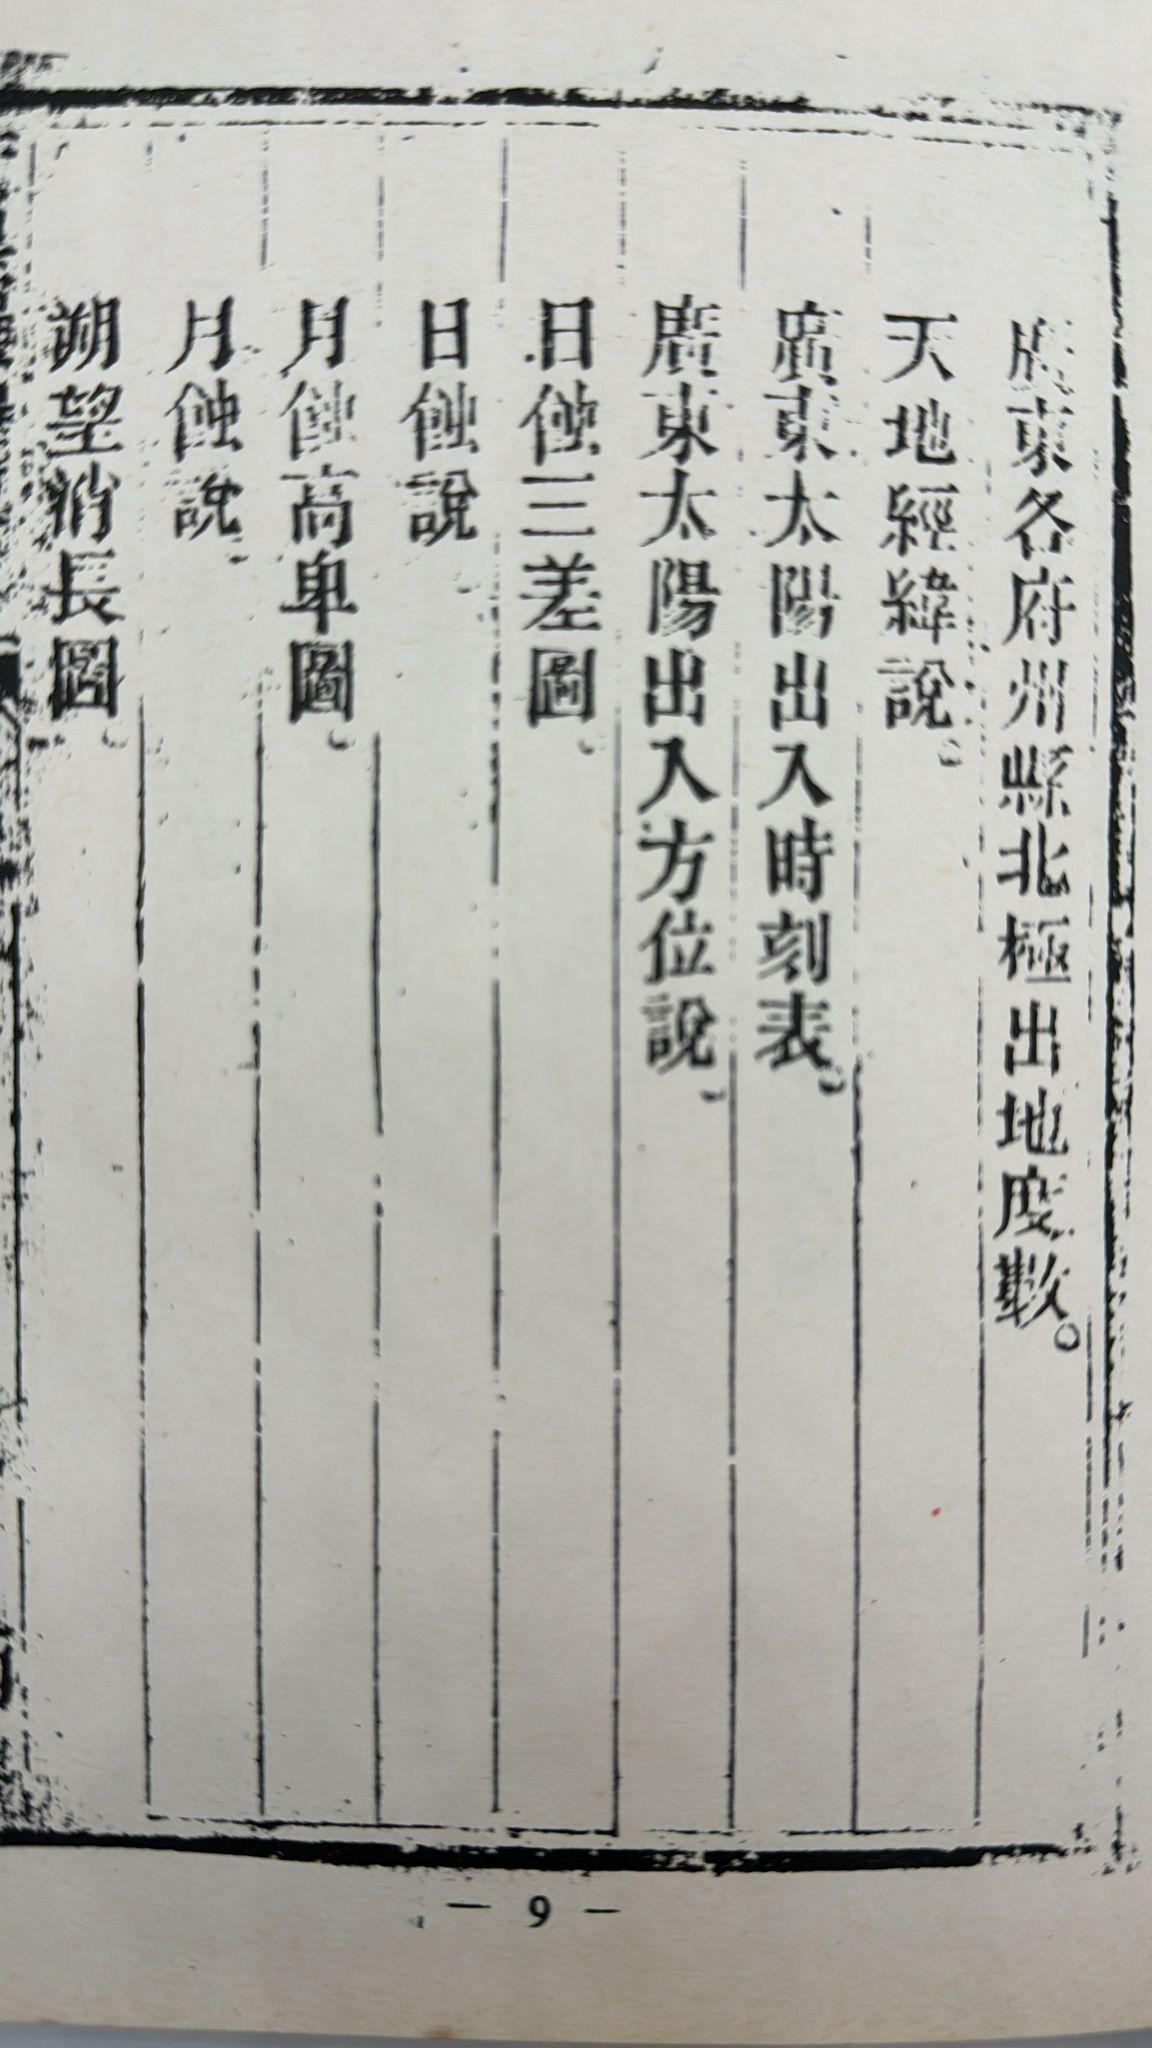 廣東各府州縣北極出地度數。
天地經緯說。
廣東太陽出入時刻表。
廣東太陽出入方位說。
日蝕三差圖。
日蝕說。
月蝕高卑圖。
月蝕說。
朔望消長圖。
— 9 —